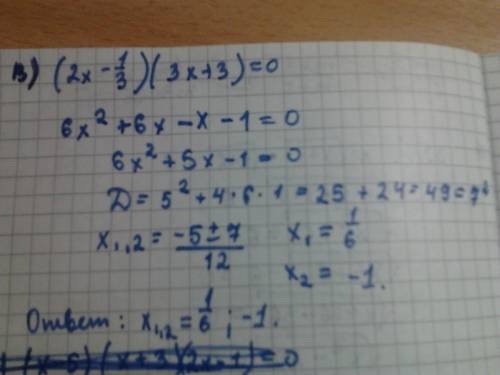 в) (2x - 1/3)(3x+3)=0
6x² + 6x - x - 1 = 0
6x² + 5x - 1 = 0
D = 5² + 4·6·1 = 25 + 24 = 49 = 7²
x₁,₂ = (-5 ± 7)/12 x₁ = 1/6
x₂ = -1.
Ответ: x₁,₂ = 1/6 ; -1.
(x-5)(x+3)(2x-1)=0